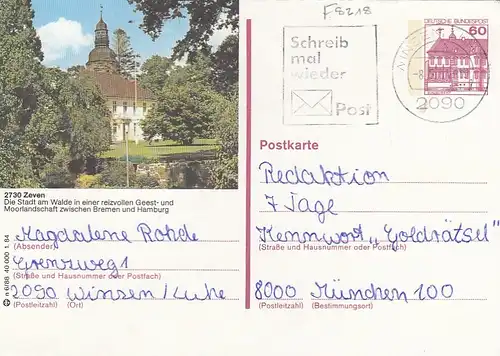 F8218
DEUTSCHE BUNDESPOST
60
Schreib
mal
wieder
Post
2090
Postkarte
2730 Zeven
Die Stadt am Walde in einer reizvollen Geest- und
Moorlandschaft zwischen Bremen und Hamburg
Magdalene Rohde
(Absender)
Grenzweg 1
(Straße und Hausnummer oder Postfach)
2090 Winsen/Luhe
(Postleitzahl) (Ort)
Redaktion
7 Tage
Kennwort „Goldrätsel"
(Straße und Hausnummer oder Postfach)
8000 München 100
(Postleitzahl) (Bestimmungsort)
n 6/88 40 000 1. 84